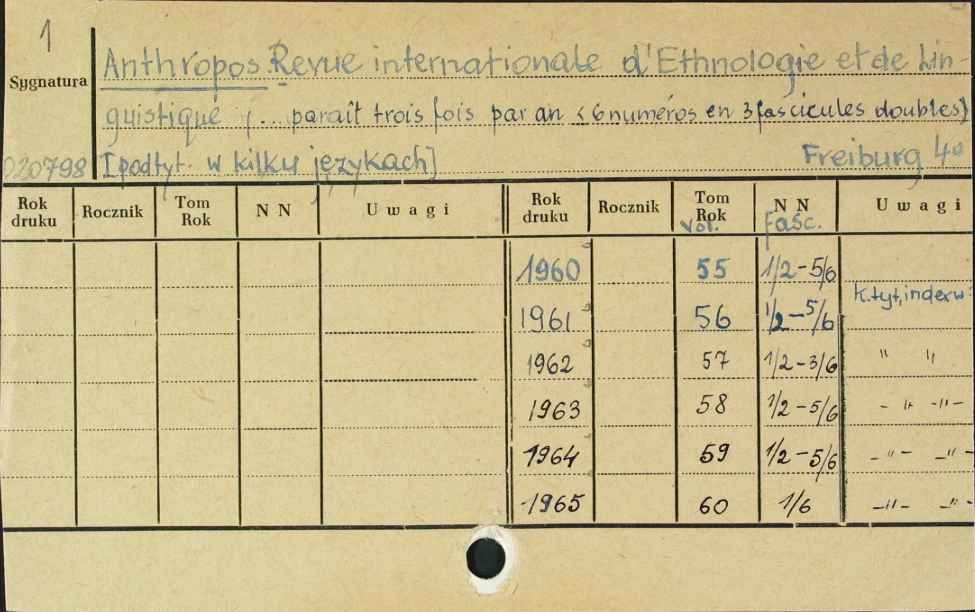 1
Sygnatura
Anthropos. Revue internationale d'Ethnologie et de Lin-
guistique (... paraît trois fois par an < 6 numéros en 3 fascicules doubles)
020798 [podtyt. w kilku językach] Freiburg 4o
Rok druku Rocznik Tom Rok NN Uwagi Rok druku Rocznik Tom Rok NN Uwagi
vol. fasc.
1960 55 1/2-5/6
k.tyt, index w
1961 56 1/2-5/6
1962 57 1/2-3/6 " "
1963 58 1/2-5/6 -"- -"-
1964 59 1/2-5/6 -"- -"-
1965 60 1/6 -"- -"-